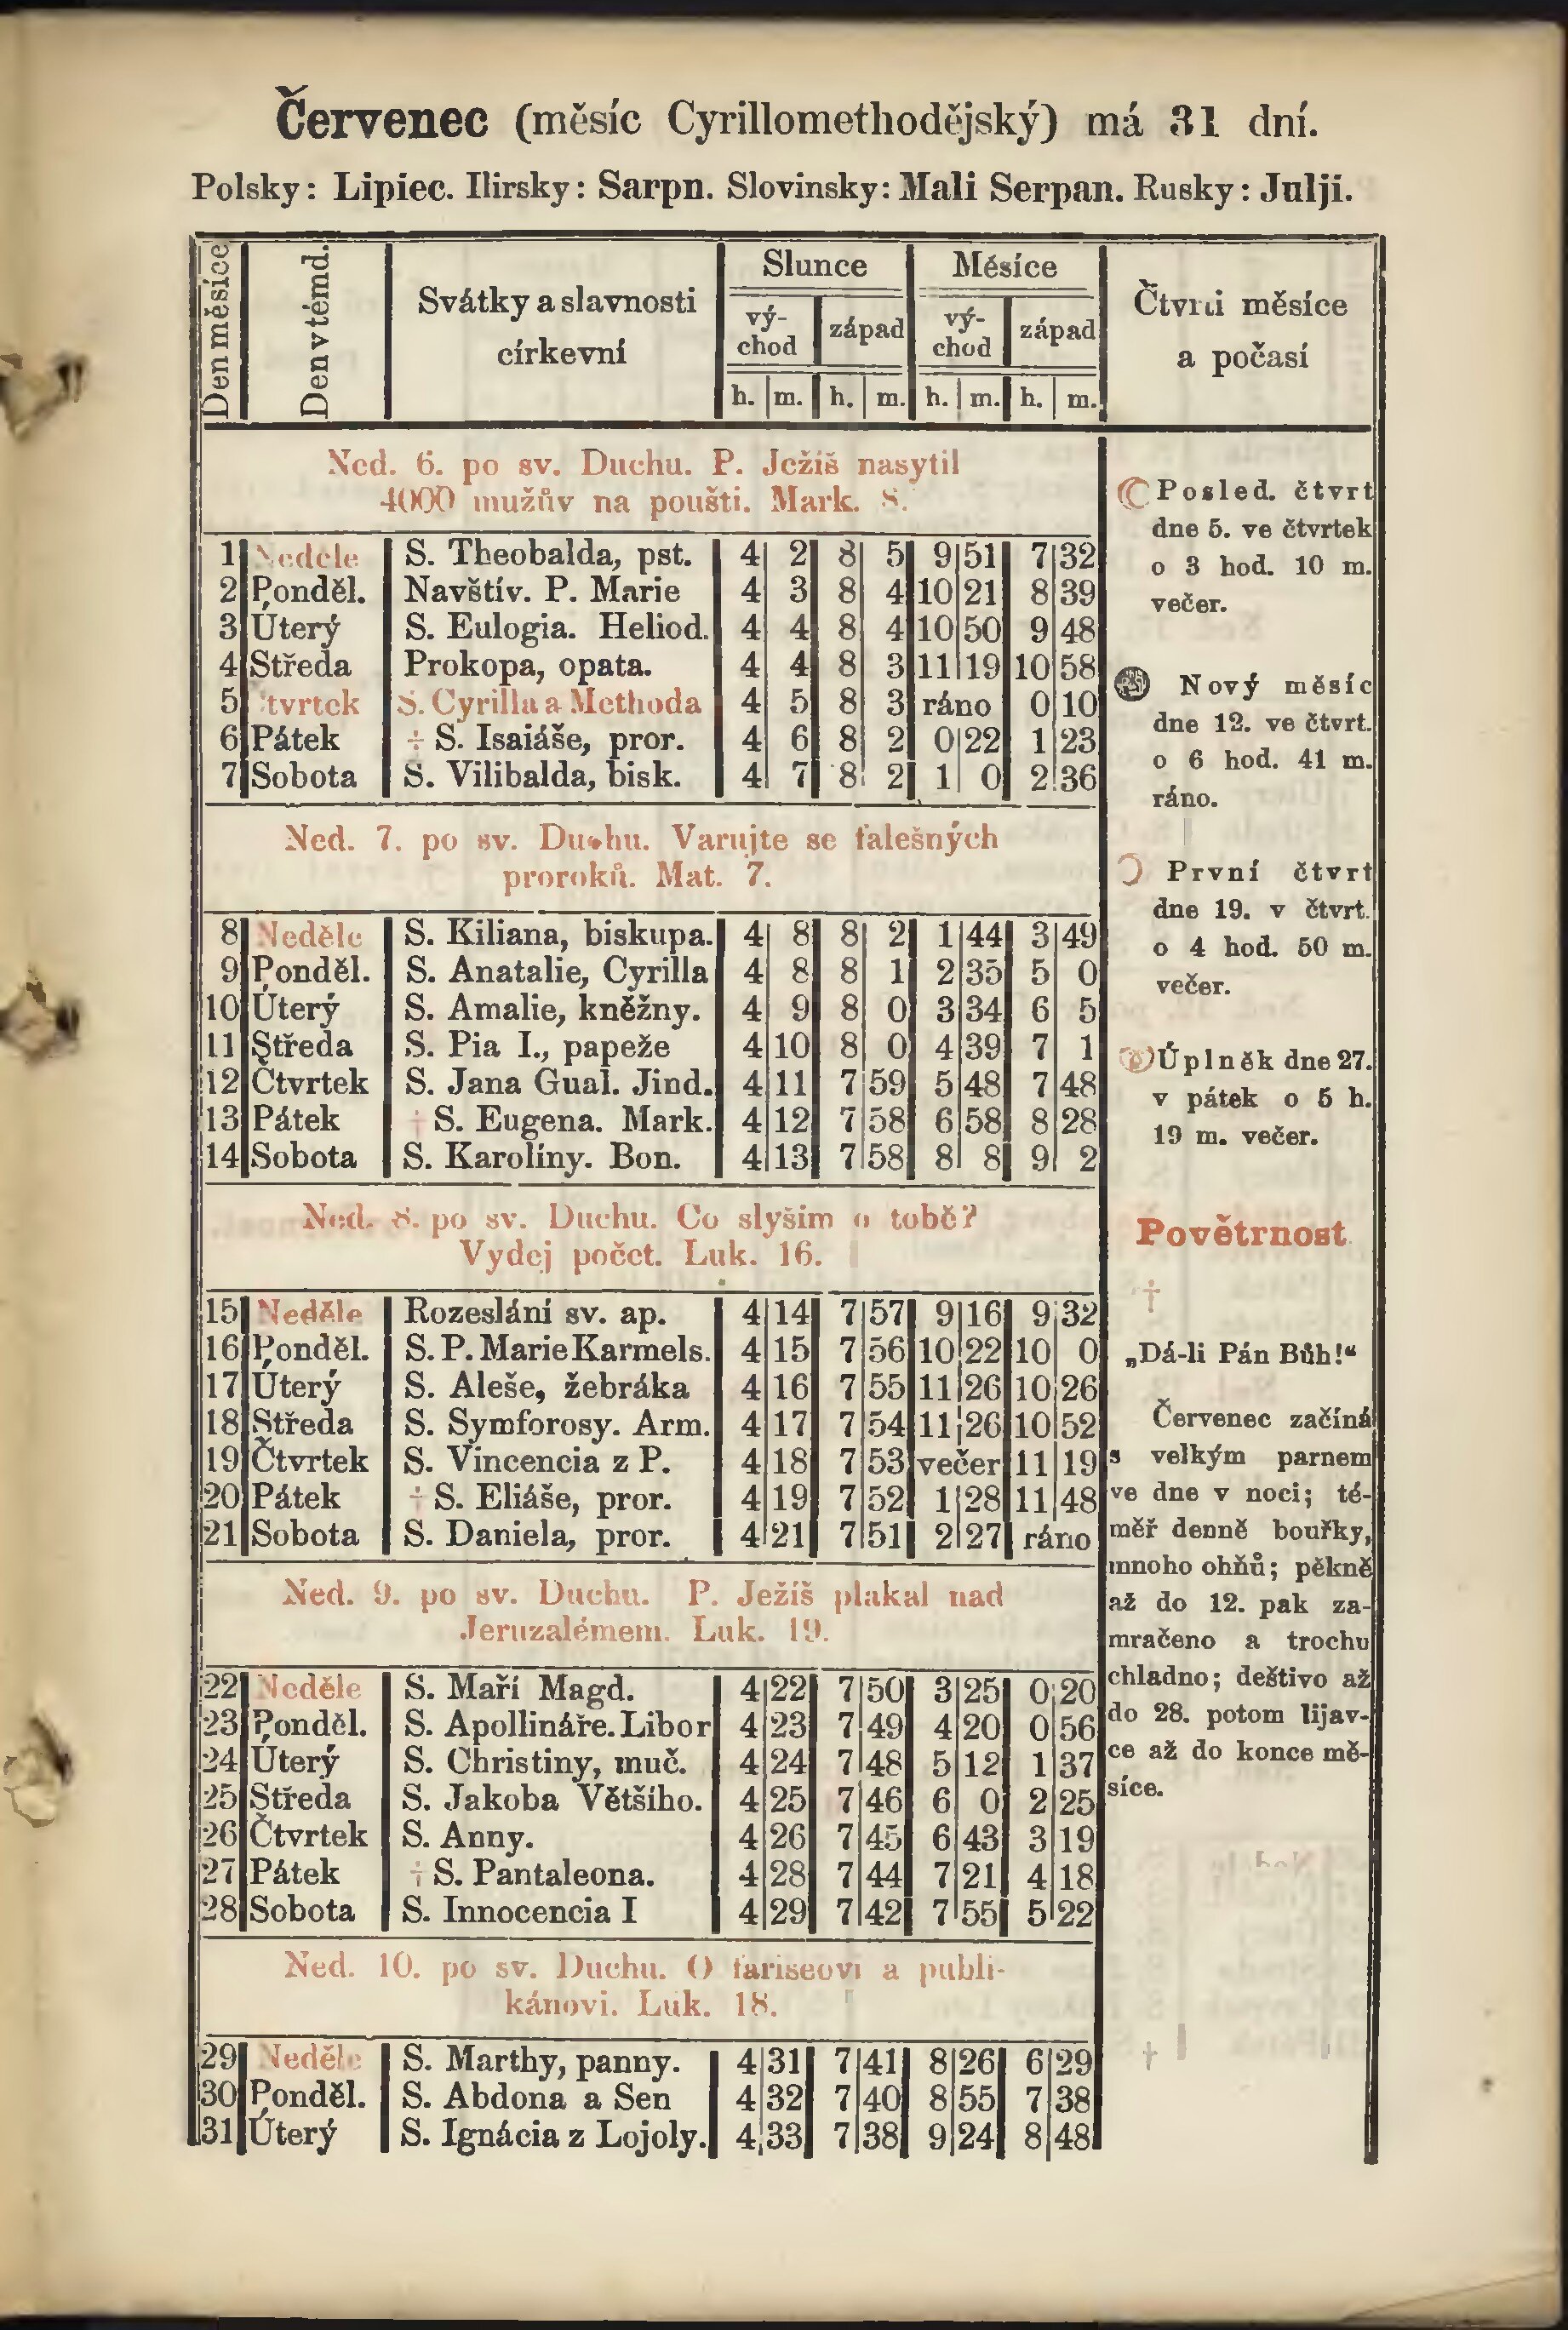 Červenec (měsíc Cyrillomethodějský) má 31 dní.
Polsky: Lipiec. Ilirsky: Sarpn. Slovinsky: Mali Serpan. Rusky: Julji.
Den měsíce
Den v témd.
Svátky a slavnosti
církevní
Slunce
vý-
chod
západ
h. m. h. m.
Měsíce
vý-
chod
západ
h. m. h. m.
Čtvrti měsíce
a počasí
Ned. 6. po sv. Duchu. P. Ježíš nasytil
4000 mužův na poušti. Mark. 8.
1 Neděle S. Theobalda, pst. 4 2 8 5 9 51 7 32
2 Ponděl. Navštív. P. Marie 4 3 8 4 10 21 8 39
3 Úterý S. Eulogia. Heliod. 4 4 8 4 10 50 9 48
4 Středa Prokopa, opata. 4 4 8 3 11 19 10 58
5 Čtvrtek S. Cyrilla a Methoda 4 5 8 3 ráno 0 10
6 Pátek † S. Isaiáše, pror. 4 6 8 2 0 22 1 23
7 Sobota S. Vilibalda, bisk. 4 7 8 2 1 0 2 36
Ned. 7. po sv. Duchu. Varujte se falešných
proroků. Mat. 7.
8 Neděle S. Kiliana, biskupa. 4 8 8 2 1 44 3 49
9 Ponděl. S. Anatalie, Cyrilla 4 8 8 1 2 35 5 0
10 Úterý S. Amalie, kněžny. 4 9 8 0 3 34 6 5
11 Středa S. Pia I., papeže 4 10 8 0 4 39 7 1
12 Čtvrtek S. Jana Gual. Jind. 4 11 7 59 5 48 7 48
13 Pátek † S. Eugena. Mark. 4 12 7 58 6 58 8 28
14 Sobota S. Karolíny. Bon. 4 13 7 58 8 8 9 2
Ned. 8. po sv. Duchu. Co slyším o tobě?
Vydej počet. Luk. 16.
15 Neděle Rozeslání sv. ap. 4 14 7 57 9 16 9 32
16 Ponděl. S. P. Marie Karmels. 4 15 7 56 10 22 10 0
17 Úterý S. Aleše, žebráka 4 16 7 55 11 26 10 26
18 Středa S. Symforosy. Arm. 4 17 7 54 11 26 10 52
19 Čtvrtek S. Vincencia z P. 4 18 7 53 večer 11 19
20 Pátek † S. Eliáše, pror. 4 19 7 52 1 28 11 48
21 Sobota S. Daniela, pror. 4 21 7 51 2 27 ráno
Ned. 9. po sv. Duchu. P. Ježíš plakal nad
Jeruzalémem. Luk. 19.
22 Neděle S. Maří Magd. 4 22 7 50 3 25 0 20
23 Ponděl. S. Apollináře. Libor 4 23 7 49 4 20 0 56
24 Úterý S. Christiny, muč. 4 24 7 48 5 12 1 37
25 Středa S. Jakoba Většího. 4 25 7 46 6 0 2 25
26 Čtvrtek S. Anny. 4 26 7 45 6 43 3 19
27 Pátek † S. Pantaleona. 4 28 7 44 7 21 4 18
28 Sobota S. Innocencia I 4 29 7 42 7 55 5 22
Ned. 10. po sv. Duchu. O fariseovi a publi-
kánovi. Luk. 18.
29 Neděle S. Marthy, panny. 4 31 7 41 8 26 6 29
30 Ponděl. S. Abdona a Sen 4 32 7 40 8 55 7 38
31 Úterý S. Ignácia z Lojoly. 4 33 7 38 9 24 8 48
Posled. čtvrt
dne 5. ve čtvrtek
o 3 hod. 10 m.
večer.
Nový měsíc
dne 12. ve čtvrt.
o 6 hod. 41 m.
ráno.
První čtvrt
dne 19. v čtvrt.
o 4 hod. 50 m.
večer.
Úplněk dne 27.
v pátek o 5 h.
19 m. večer.
Povětrnost
†
„Dá-li Pán Bůh!“
Červenec začíná
s velkým parnem
ve dne v noci; té-
měř denně bouřky,
mnoho ohňů; pěkně
až do 12. pak za-
mračeno a trochu
chladno; deštivo až
do 28. potom lijav-
ce až do konce mě-
síce.